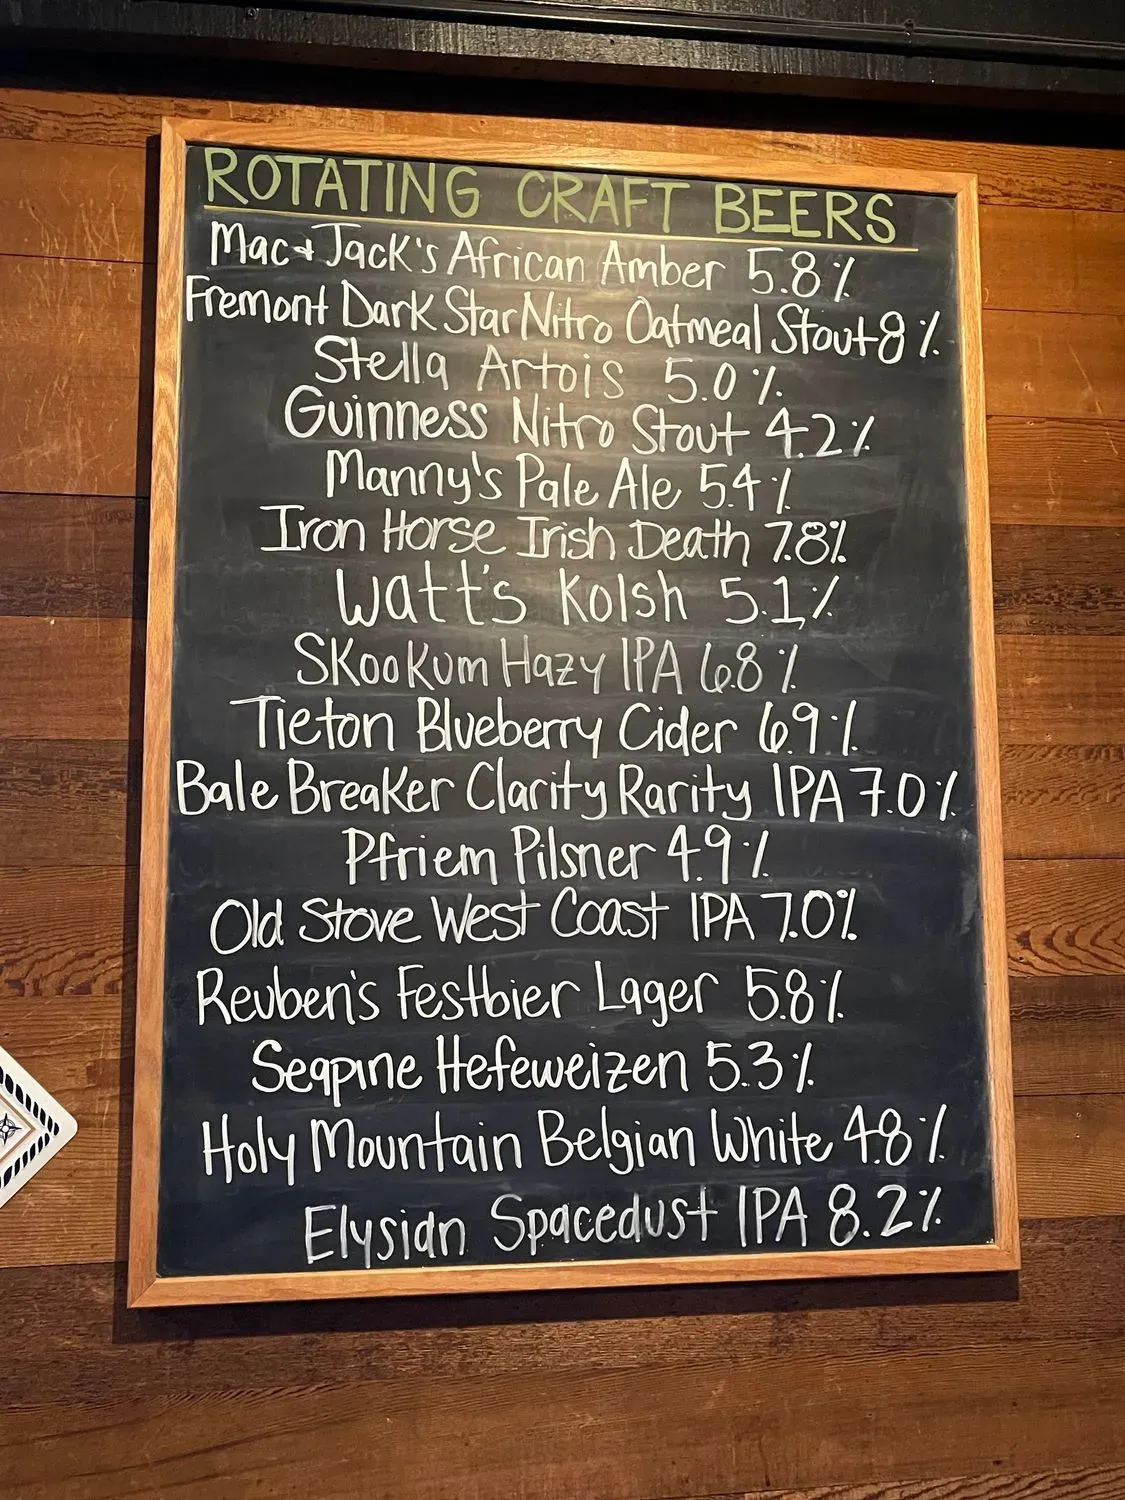 ROTATING CRAFT BEERS
Mac & Jack's African Amber 5.8%
Fremont Dark Star Nitro Oatmeal Stout 8%
Stella Artois 5.0%
Guinness Nitro Stout 4.2%
Manny's Pale Ale 5.4%
Iron Horse Irish Death 7.8%
Watt's Kolsh 5.1%
Skookum Hazy IPA 6.8%
Tieton Blueberry Cider 6.9%
Bale Breaker Clarity Rarity IPA 7.0%
Pfriem Pilsner 4.9%
Old Stove West Coast IPA 7.0%
Reuben's Festbier Lager 5.8%
Seapine Hefeweizen 5.3%
Holy Mountain Belgian White 4.8%
Elysian Spacedust IPA 8.2%